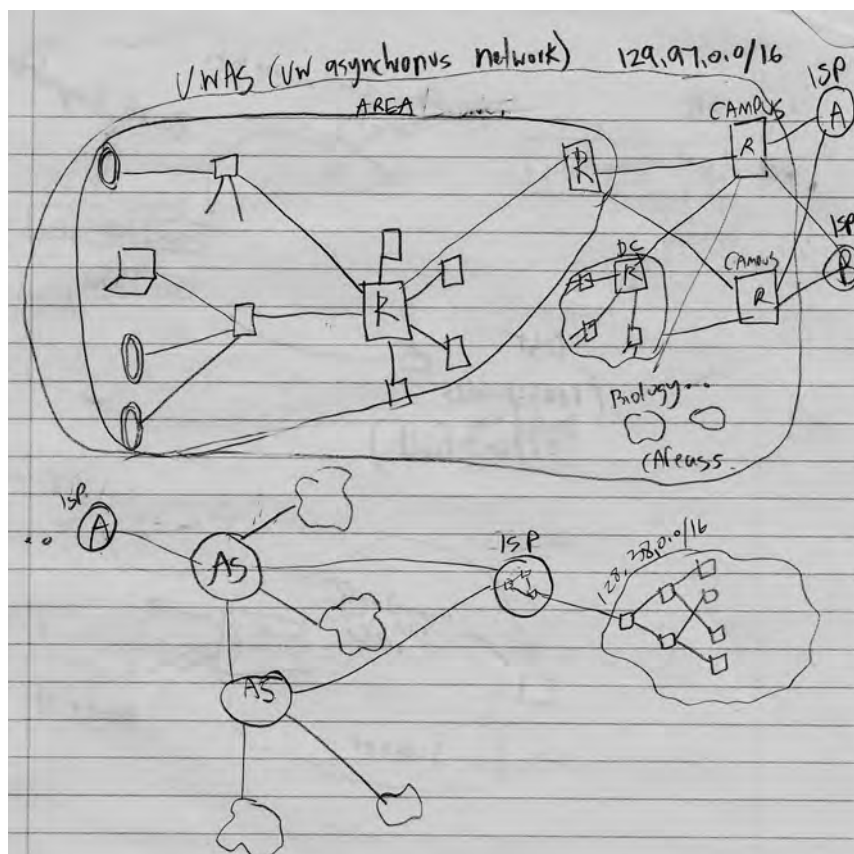 UWAS (UW asynchronus network) 129.97.0.0/16
ISP
AREA
CAMPUS
A
R
R
ISP
DC
R
CAMPUS
R
R
Biology...
(Areass.
ISP
A
AS
ISP
128.28.0.0/16
AS